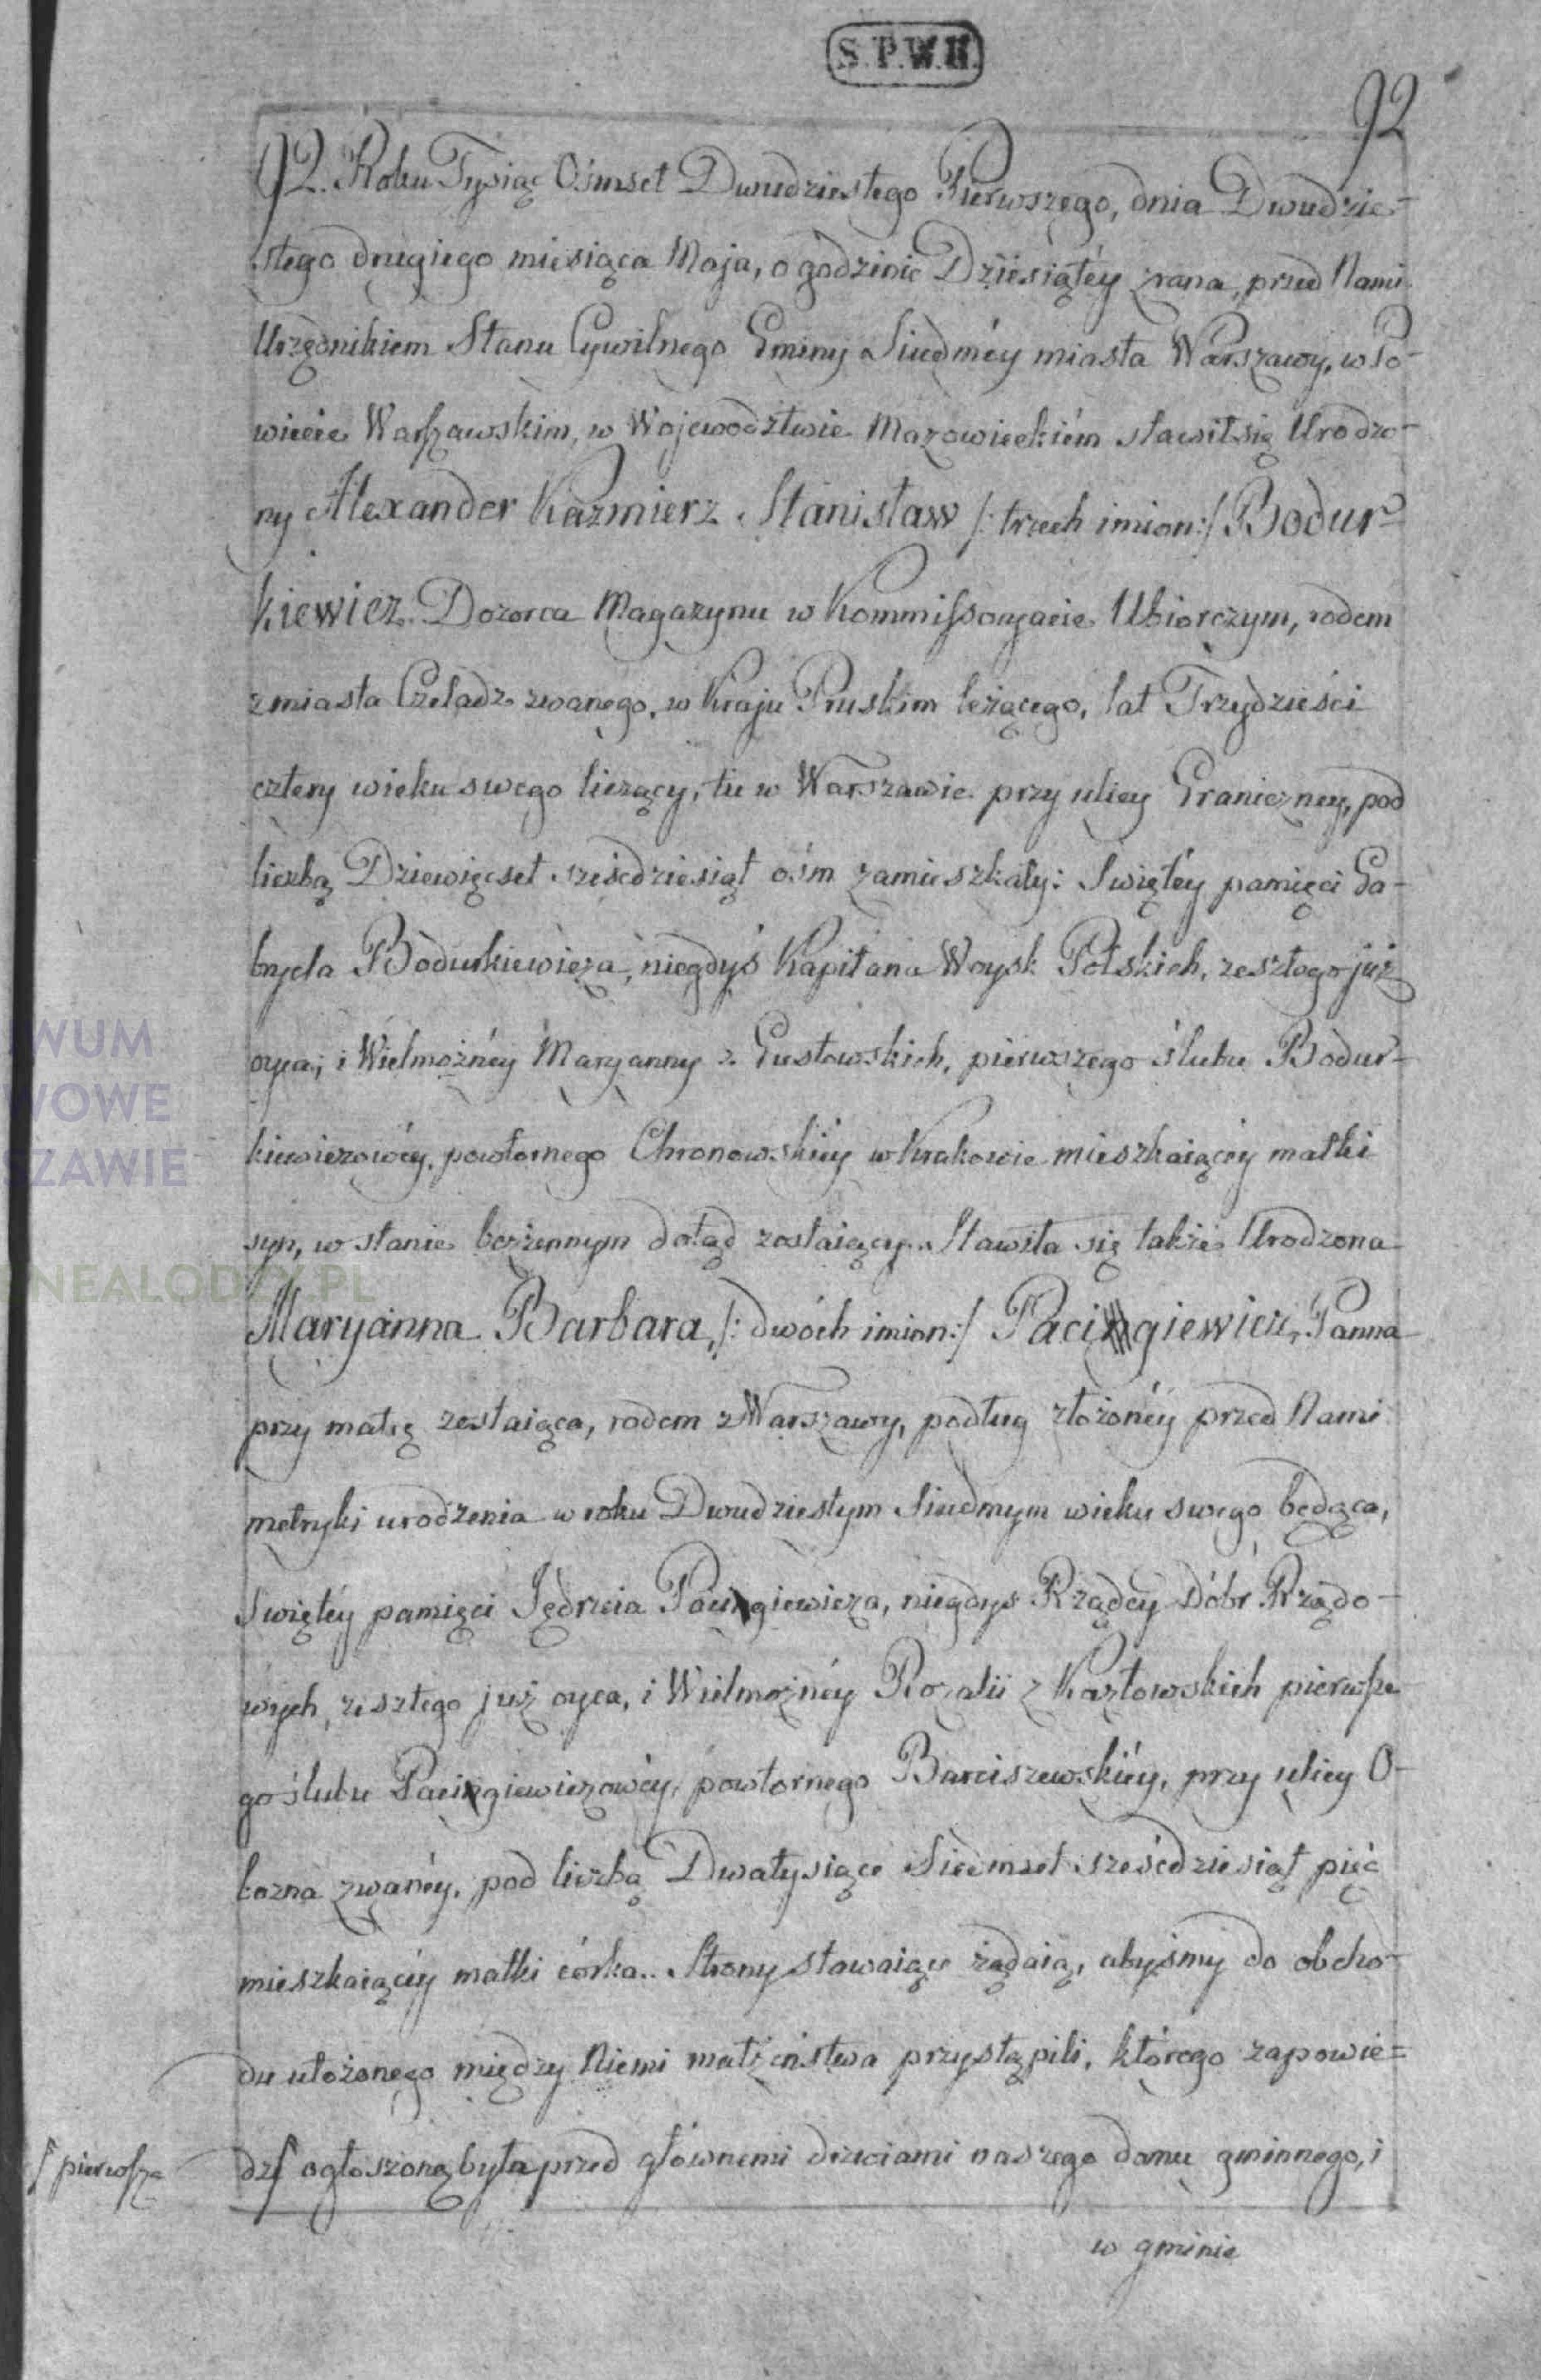 S.P.W.H.
92
92. Roku Tysiąc Ośmset Dwudziestego Pierwszego, dnia Dwudzie-
stego drugiego miesiąca Maja, o godzinie Dziesiątéy zrana, przed Nami
Urzędnikiem Stanu Cywilnego Gminy Siedméy miasta Warszawy, w Po-
wiecie Warszawskim, w Województwie Mazowieckiém stawił się Urodzo-
ny Alexander Kaźmierz Stanisław /: trzech imion:/ Bodur-
kiewicz Dozorca Magazynu w Kommissaryacie Ubiorczym, rodem
z miasta Czeladz zwanego, w Kraju Pruskim leżącego, lat Trzydzieści
cztery wieku swego liczący, tu w Warszawie przy ulicy Graniczney, pod
liczbą Dziewięćset sześćdziesiąt ośm zamieszkały: Swiętéy pamięci Ga-
bryela Bodurkiewicza, niegdyś Kapitana Woysk Polskich, zeszłego już
oyca, i Wielmożnéy Maryanny z Gustowskich, pierwszego ślubu Bodur-
kiewiczowéy, powtornego Chronowskiéy w Krakowie mieszkaiącéy matki
syn, w stanie bezżennym dotąd zostaiący. Stawiła się także Urodzona
Maryanna Barbara, /: dwóch imion:/ Pacingiewicz, Panna
przy matce zostaiąca, rodem z Warszawy, podług złożonéy przed Nami
metryki urodzenia w roku Dwudziestym Siedmym wieku swego będąca,
Swiętéy pamięci Jędrzeia Pacingiewicza, niegdys Rządcy Dóbr Rządo-
wych, zeszłego już oyca, i Wielmożnéy Rozalii z Kozłowskich pierwsze
go ślubu Pacingiewiczowéy, powtornego Barciszewskiéy, przy ulicy O-
bozna zwanéy, pod liczbą Dwatysiące Siedmset sześćdziesiąt pięć
mieszkaiącéy matki córka. Strony stawaiące żądaią, abyśmy do obcho-
du ułożonego między Niemi małżeństwa przystąpili, którego zapowie=
dź ogłoszoną była przed głównemi drzwiami naszego domu gminnego, i
pierwsza
w gminie
WUM
WOWE
SZAWIE
NEALODZY.PL